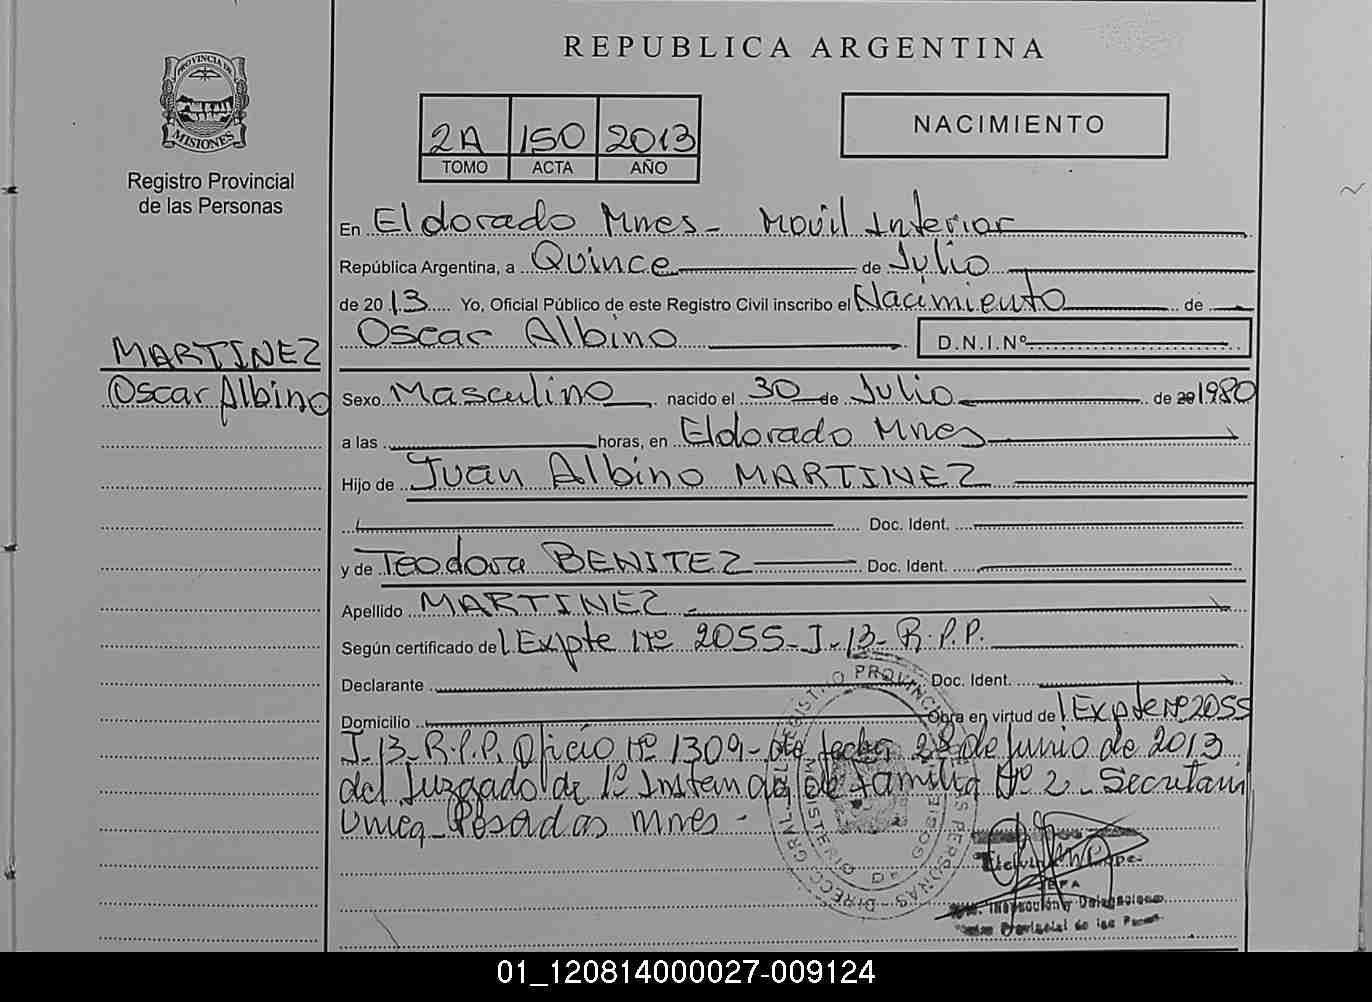 REPUBLICA ARGENTINA
PROVINCIA DE
MISIONES
Registro Provincial
de las Personas
2A 150 2013
TOMO ACTA AÑO
NACIMIENTO
En Eldorado Mnes- Movil Interior
República Argentina, a Quince de Julio
de 2013 Yo, Oficial Público de este Registro Civil inscribo el Nacimiento de
Oscar Albino D.N.I.Nº
MARTINEZ
Oscar Albino
Sexo Masculino nacido el 30 de Julio de 20 1980
a las horas, en Eldorado Mnes
Hijo de Juan Albino MARTINEZ
Doc. Ident.
y de Teodora BENITEZ Doc. Ident.
Apellido MARTINEZ -
Según certificado de Expte Nº 2055-J-13-R.P.P.
Declarante Doc. Ident.
Domicilio Obra en virtud de Expte Nº 2055
J-13-R.P.P. Oficio Nº 1309- de fecha 28 de junio de 2013
del Juzgado de 1º Instancia de Familia Nº 2- Secretaria
Unica- Posadas Mnes -
JEFA
Inspección y Delegaciones
Provincial de las
01_120814000027-009124